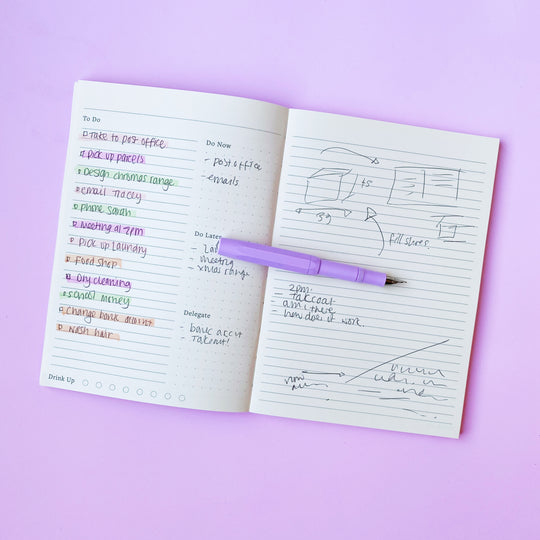 To Do
Take to post office
pick up parcels
Design chrismas range
email Tracey
phone Sarah
Meeting at 2pm
pick up laundry
Food shop
Dry cleaning
school money
Change bank account
wash hair
Drink Up
Do Now
- post office
- emails
Do Later
- meeting
- xmas range
Delegate
- bank accnt
- Takeout!
fill shares
2pm.
- how does it work.